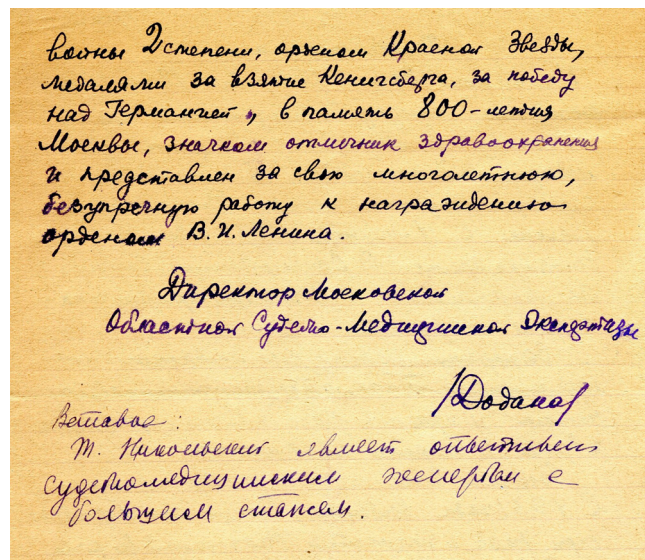 войны 2 степени, орденом Красной Звезды,
медалями за взятие Кенигсберга, за победу
над Германией, в память 800-летия
Москвы, значком отличник здравоохранения
и представлен за свою многолетнюю,
безупречную работу к награждению
орденом В. И. Ленина.
Директор Московской
Областной Судебно-Медицинской Экспертизы
Вставка:
Т. Никольский являет
судебномедицинским экспертом с
большим стажем.